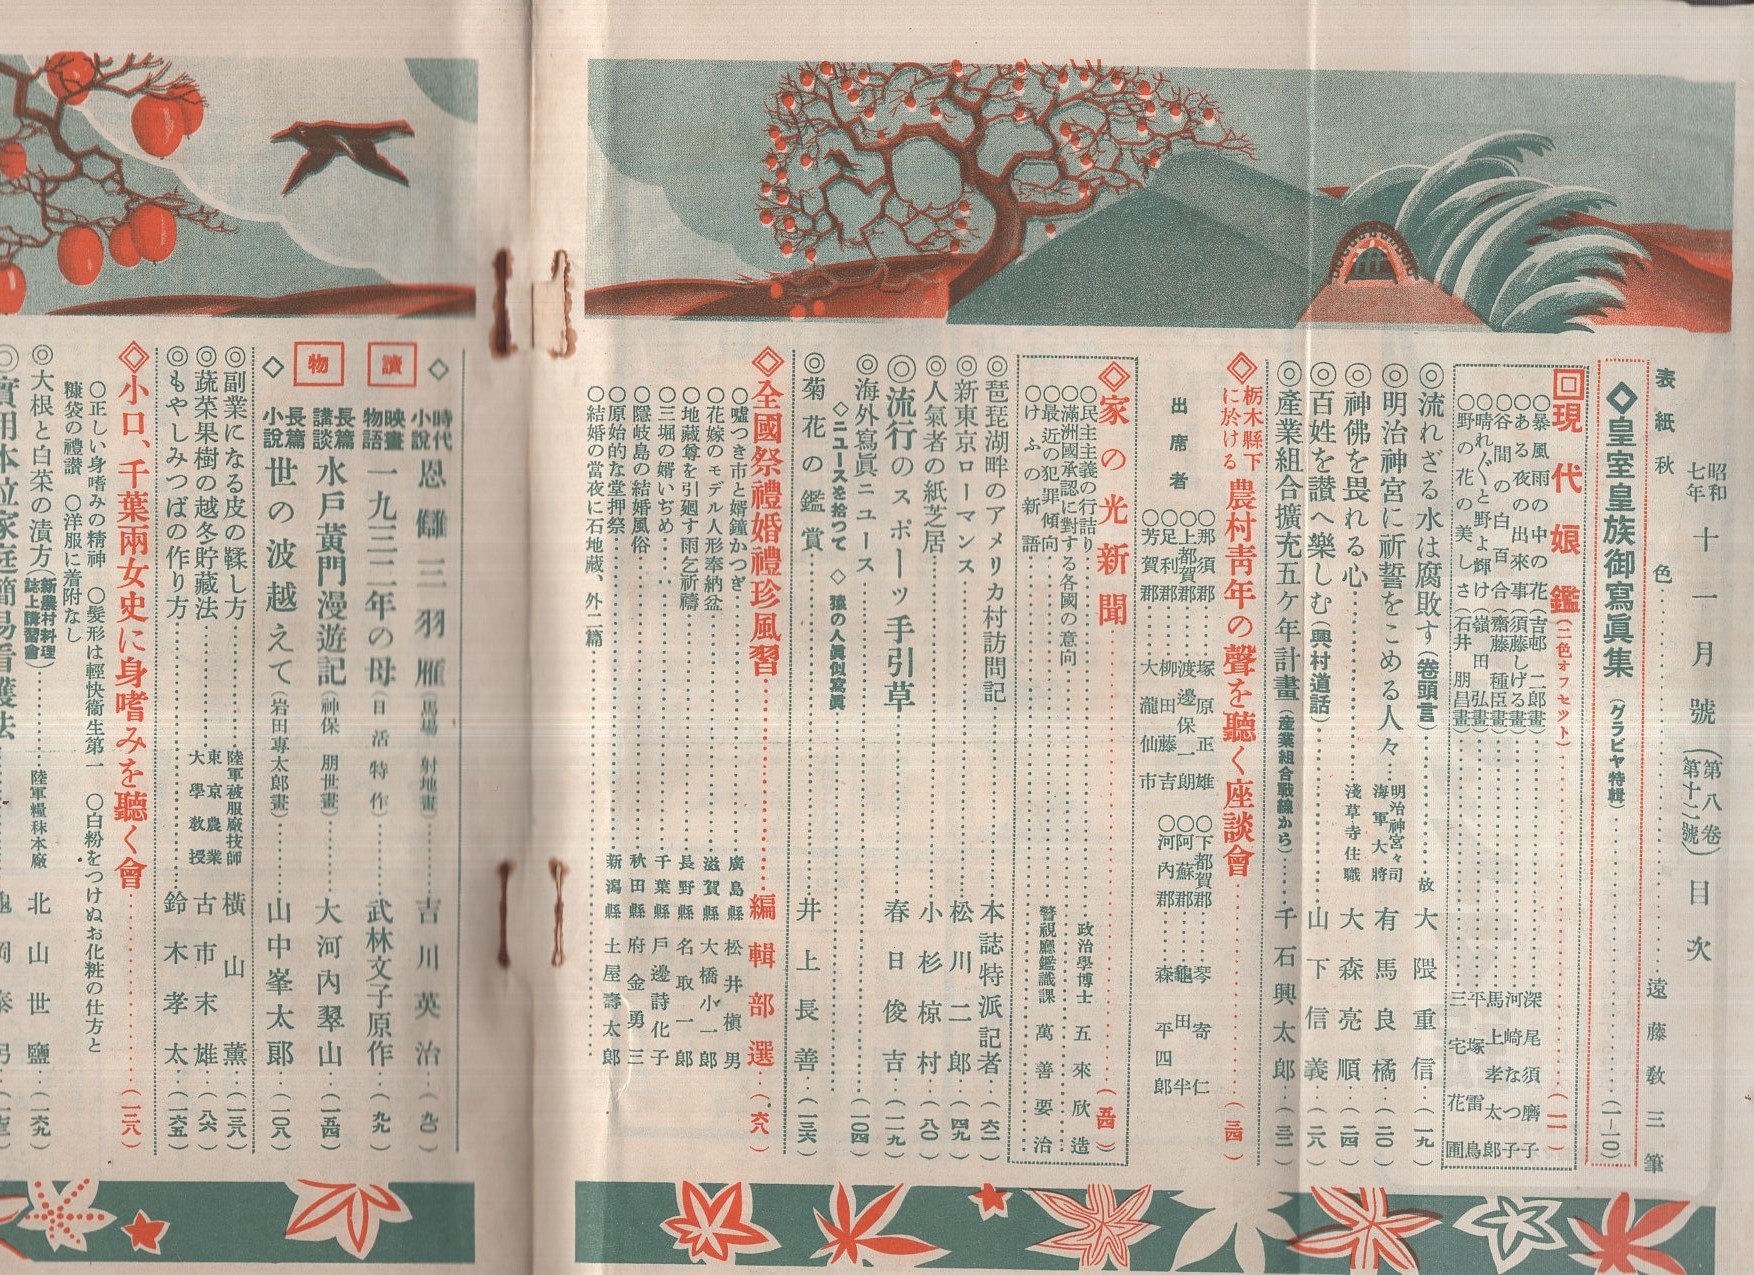 昭和七年 十一月號 (第八卷第十一號) 目次
表紙 秋色 遠藤敎三筆
◇皇室皇族御寫眞集 (グラビヤ特輯) (一–一〇)
回現代娘鑑 (二色オフセット) (一一)
○暴風雨の中の花 (吉邨二郎畫) 深尾須磨子
○ある夜の出來事 (須藤しげる畫) 河崎なつ子
○谷間の白百合 (齋藤種臣畫) 馬上孝太郎
○晴ればれと野よ輝け (嶺田弘畫) 平塚雷鳥
○野の花の美しさ (石井朋昌畫) 三宅花圃
◎流れざる水は腐敗す (卷頭言) 故 大隈重信 (一九)
◎明治神宮に祈誓をこめる人々 明治神宮々司 海軍大將 有馬良橘 (二〇)
◎神佛を畏れる心 淺草寺住職 大森亮順 (二四)
◎百姓を讃へ樂しむ (興村道話) 山下信義 (二八)
◎產業組合擴充五ケ年計畫 (產業組合戰線から) 千石興太郎 (三二)
◇栃木縣下に於ける 農村靑年の聲を聽く座談會 (三四)
出席者
○那須郡 塚原正雄
○上都賀郡 渡邊保一朗
○足利郡 柳田藤吉
○芳賀郡 大瀧仙市
○下都賀郡 琴寄仁
○阿蘇郡 龜田伴
○河內郡 森平四郎
◇家の光新聞 (五四)
○民主主義の行詰り 政治學博士 五來欣造
○滿洲國承認に對する各國の意向
○最近の犯罪傾向 警視廳鑑識課 萬善要治
○けふの新語
◎琵琶湖畔のアメリカ村訪問記 本誌特派記者 (六二)
◎新東京ローマンス 松川二郎 (四九)
◎人氣者の紙芝居 小杉椋村 (八〇)
◎流行のスポーツ手引草 春日俊吉 (一二九)
◎海外寫眞ニュース (一〇四)
◇ニュースを拾つて ◇猿の人眞似寫眞
◎菊花の鑑賞 井上長善 (一三六)
◇全國祭禮婚禮珍風習 編輯部選 (六八)
○嘘つき市と婿鐘かつぎ 廣島縣 松井槇男
○花嫁のモデル人形奉納盆 滋賀縣 大橋小一郎
○地藏尊を引廻す雨乞祈禱 長野縣 名取一郎
○三堀の婿いぢめ 千葉縣 戶邊詩化子
○隱岐島の結婚風俗 秋田縣 府金勇三
○原始的な堂押祭 新潟縣 土屋壽太郎
○結婚の當夜に石地藏、外二篇
◇讀物◇
時代小說 恩讎三羽雁 (馬場射地畫) 吉川英治 (九〇)
映畫物語 一九三二年の母 (日活特作) 武林文子原作 (九九)
長篇講談 水戶黃門漫遊記 (神保朋世畫) 大河內翠山 (一五四)
長篇小說 世の波越えて (岩田專太郎畫) 山中峯太郎 (一〇八)
◎副業になる皮の鞣し方 陸軍被服廠技師 橫山薰 (一三八)
◎蔬菜果樹の越冬貯藏法 東京農業大學敎授 古市末雄 (八六)
◎もやしみつばの作り方 鈴木孝太 (一六五)
◇小口、千葉兩女史に身嗜みを聽く會 (一三八)
○正しい身嗜みの精神 ○髮形は輕快衞生第一 ○白粉をつけぬお化粧の仕方と
糠袋の禮讃 ○洋服に着附なし
◎大根と白菜の漬方 (新農村料理誌上講習會) 陸軍糧秣本廠 北山世鹽 (一六九)